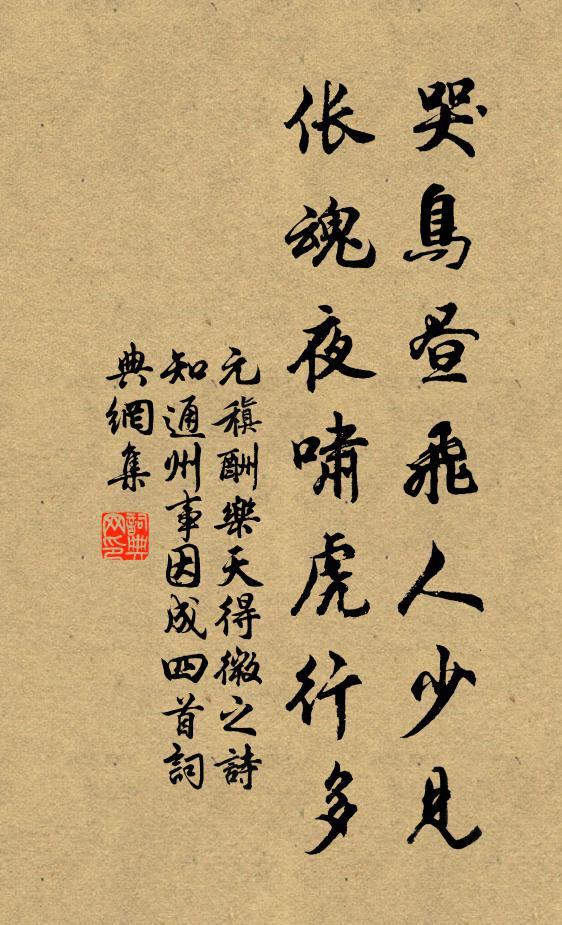 哭鳥昼飛人少見
伥魂夜嘯虎行多
元稹酬樂天得微之詩
知通州事因成四首詞
典網集
詞典
网印